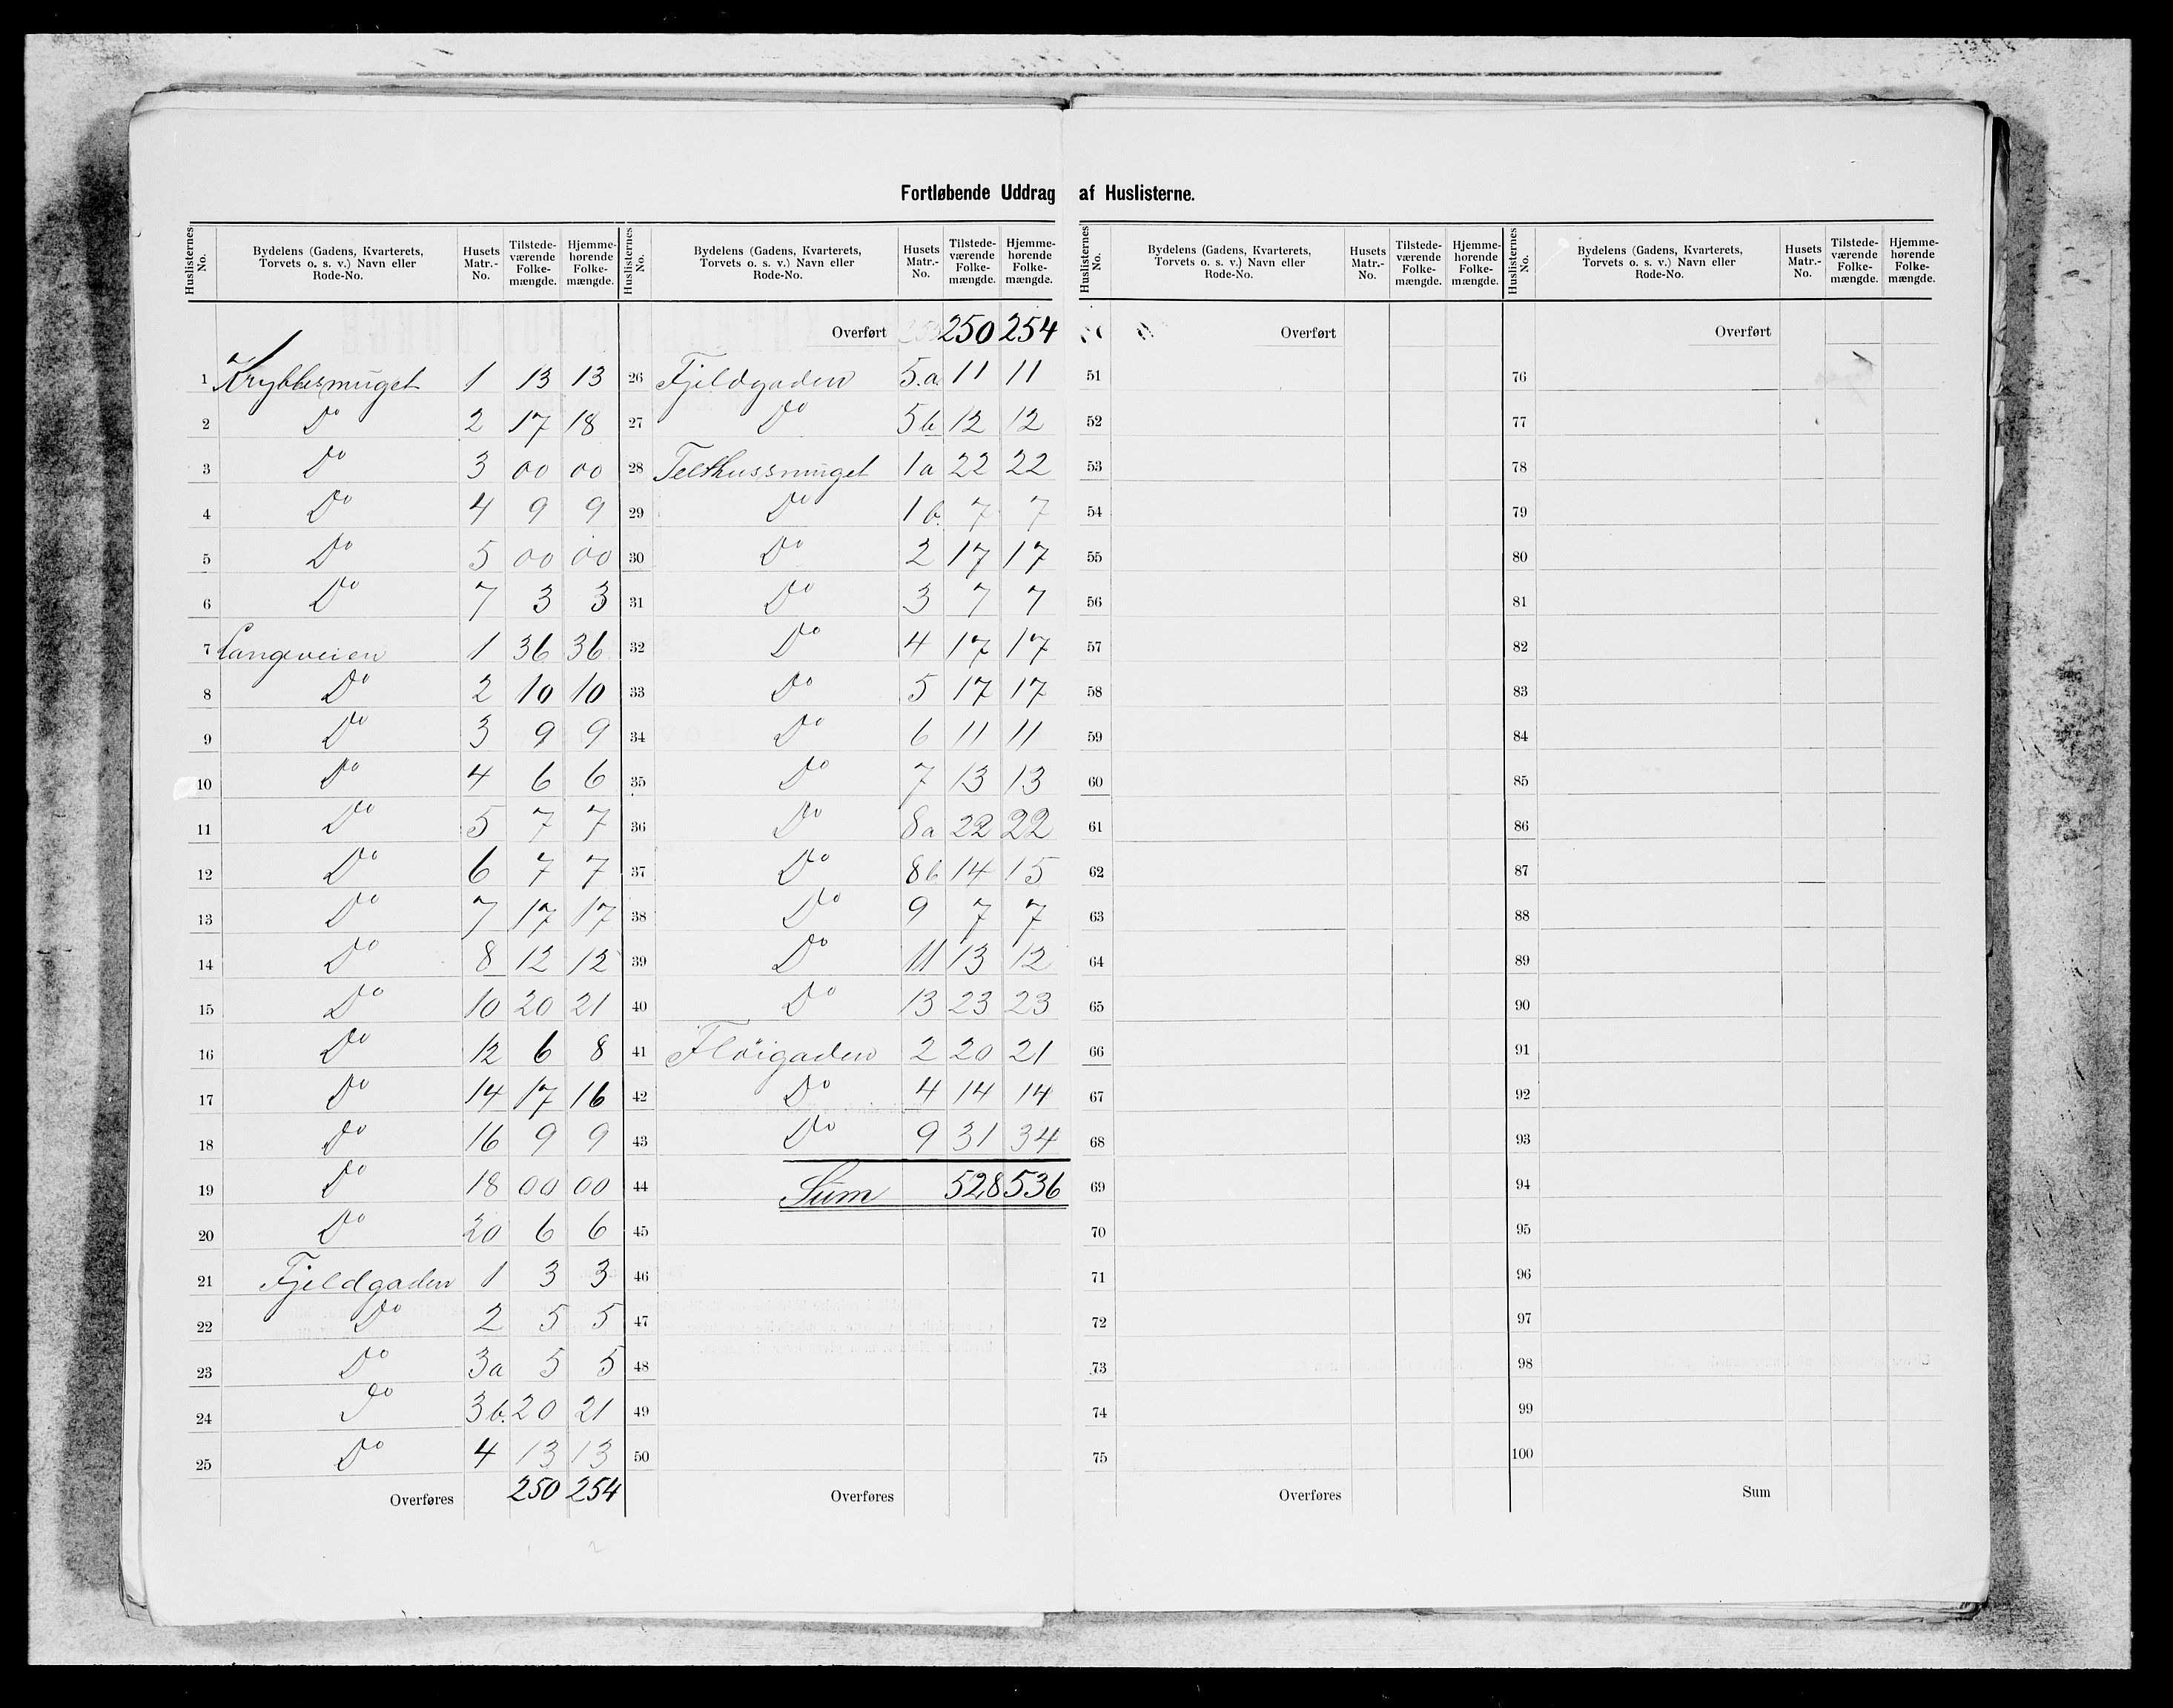 Fortløbende Uddrag af Huslisterne.
Huslisternes No. Bydelens (Gadens, Kvarterets, Torvets o. s. v.) Navn eller Rode-No. Husets Matr.-No. Tilstedeværende Folkemængde. Hjemmehørende Folkemængde.
1 Krybbesmuget 1 13 13
2 Do 2 17 18
3 Do 3 00 00
4 Do 4 9 9
5 Do 5 00 00
6 Do 7 3 3
7 Langeveien 1 36 36
8 Do 2 10 10
9 Do 3 9 9
10 Do 4 6 6
11 Do 5 7 7
12 Do 6 7 7
13 Do 7 17 17
14 Do 8 12 12
15 Do 10 20 21
16 Do 12 6 8
17 Do 14 17 16
18 Do 16 9 9
19 Do 18 00 00
20 Do 20 6 6
21 Fjeldgaden 1 3 3
22 Do 2 5 5
23 Do 3a 5 5
24 Do 3b. 20 21
25 Do 4 13 13
Overføres 250 254
Huslisternes No. Bydelens (Gadens, Kvarterets, Torvets o. s. v.) Navn eller Rode-No. Husets Matr.-No. Tilstedeværende Folkemængde. Hjemmehørende Folkemængde.
Overført 250 254
26 Fjeldgaden 5.a 11 11
27 Do 5b 12 12
28 Telthussmuget 1a 22 22
29 Do 1b. 7 7
30 Do 2 17 17
31 Do 3 7 7
32 Do 4 17 17
33 Do 5 17 17
34 Do 6 11 11
35 Do 7 13 13
36 Do 8a 22 22
37 Do 8b 14 15
38 Do 9 7 7
39 Do 11 13 12
40 Do 13 23 23
41 Fløigaden 2 20 21
42 Do 4 14 14
43 Do 9 31 34
44 Sum 528 536
45
46
47
48
49
50
Overføres
Huslisternes No. Bydelens (Gadens, Kvarterets, Torvets o. s. v.) Navn eller Rode-No. Husets Matr.-No. Tilstedeværende Folkemængde. Hjemmehørende Folkemængde.
Overført
51
52
53
54
55
56
57
58
59
60
61
62
63
64
65
66
67
68
69
70
71
72
73
74
75
Overføres
Huslisternes No. Bydelens (Gadens, Kvarterets, Torvets o. s. v.) Navn eller Rode-No. Husets Matr.-No. Tilstedeværende Folkemængde. Hjemmehørende Folkemængde.
Overført
76
77
78
79
80
81
82
83
84
85
86
87
88
89
90
91
92
93
94
95
96
97
98
99
100
Sum